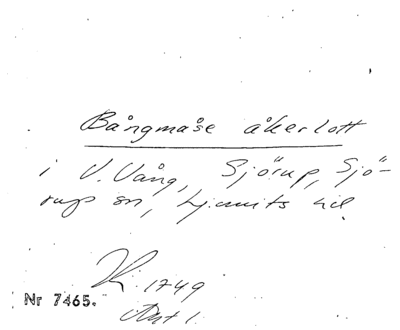 Bångmåse åkerlott
i V. Vång, Sjörup, Sjö-
rups sn, Ljunits hd.
1749
Nr 7465.
Akt 1.